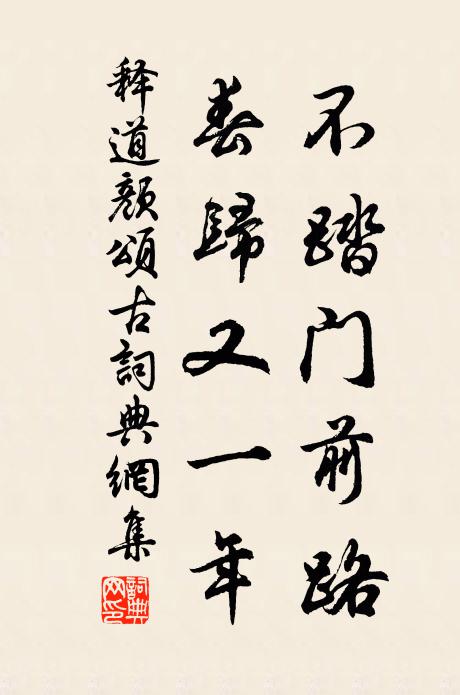 不踏门前路
春歸又一年
释道颜頌古詞典網集
詞典网印